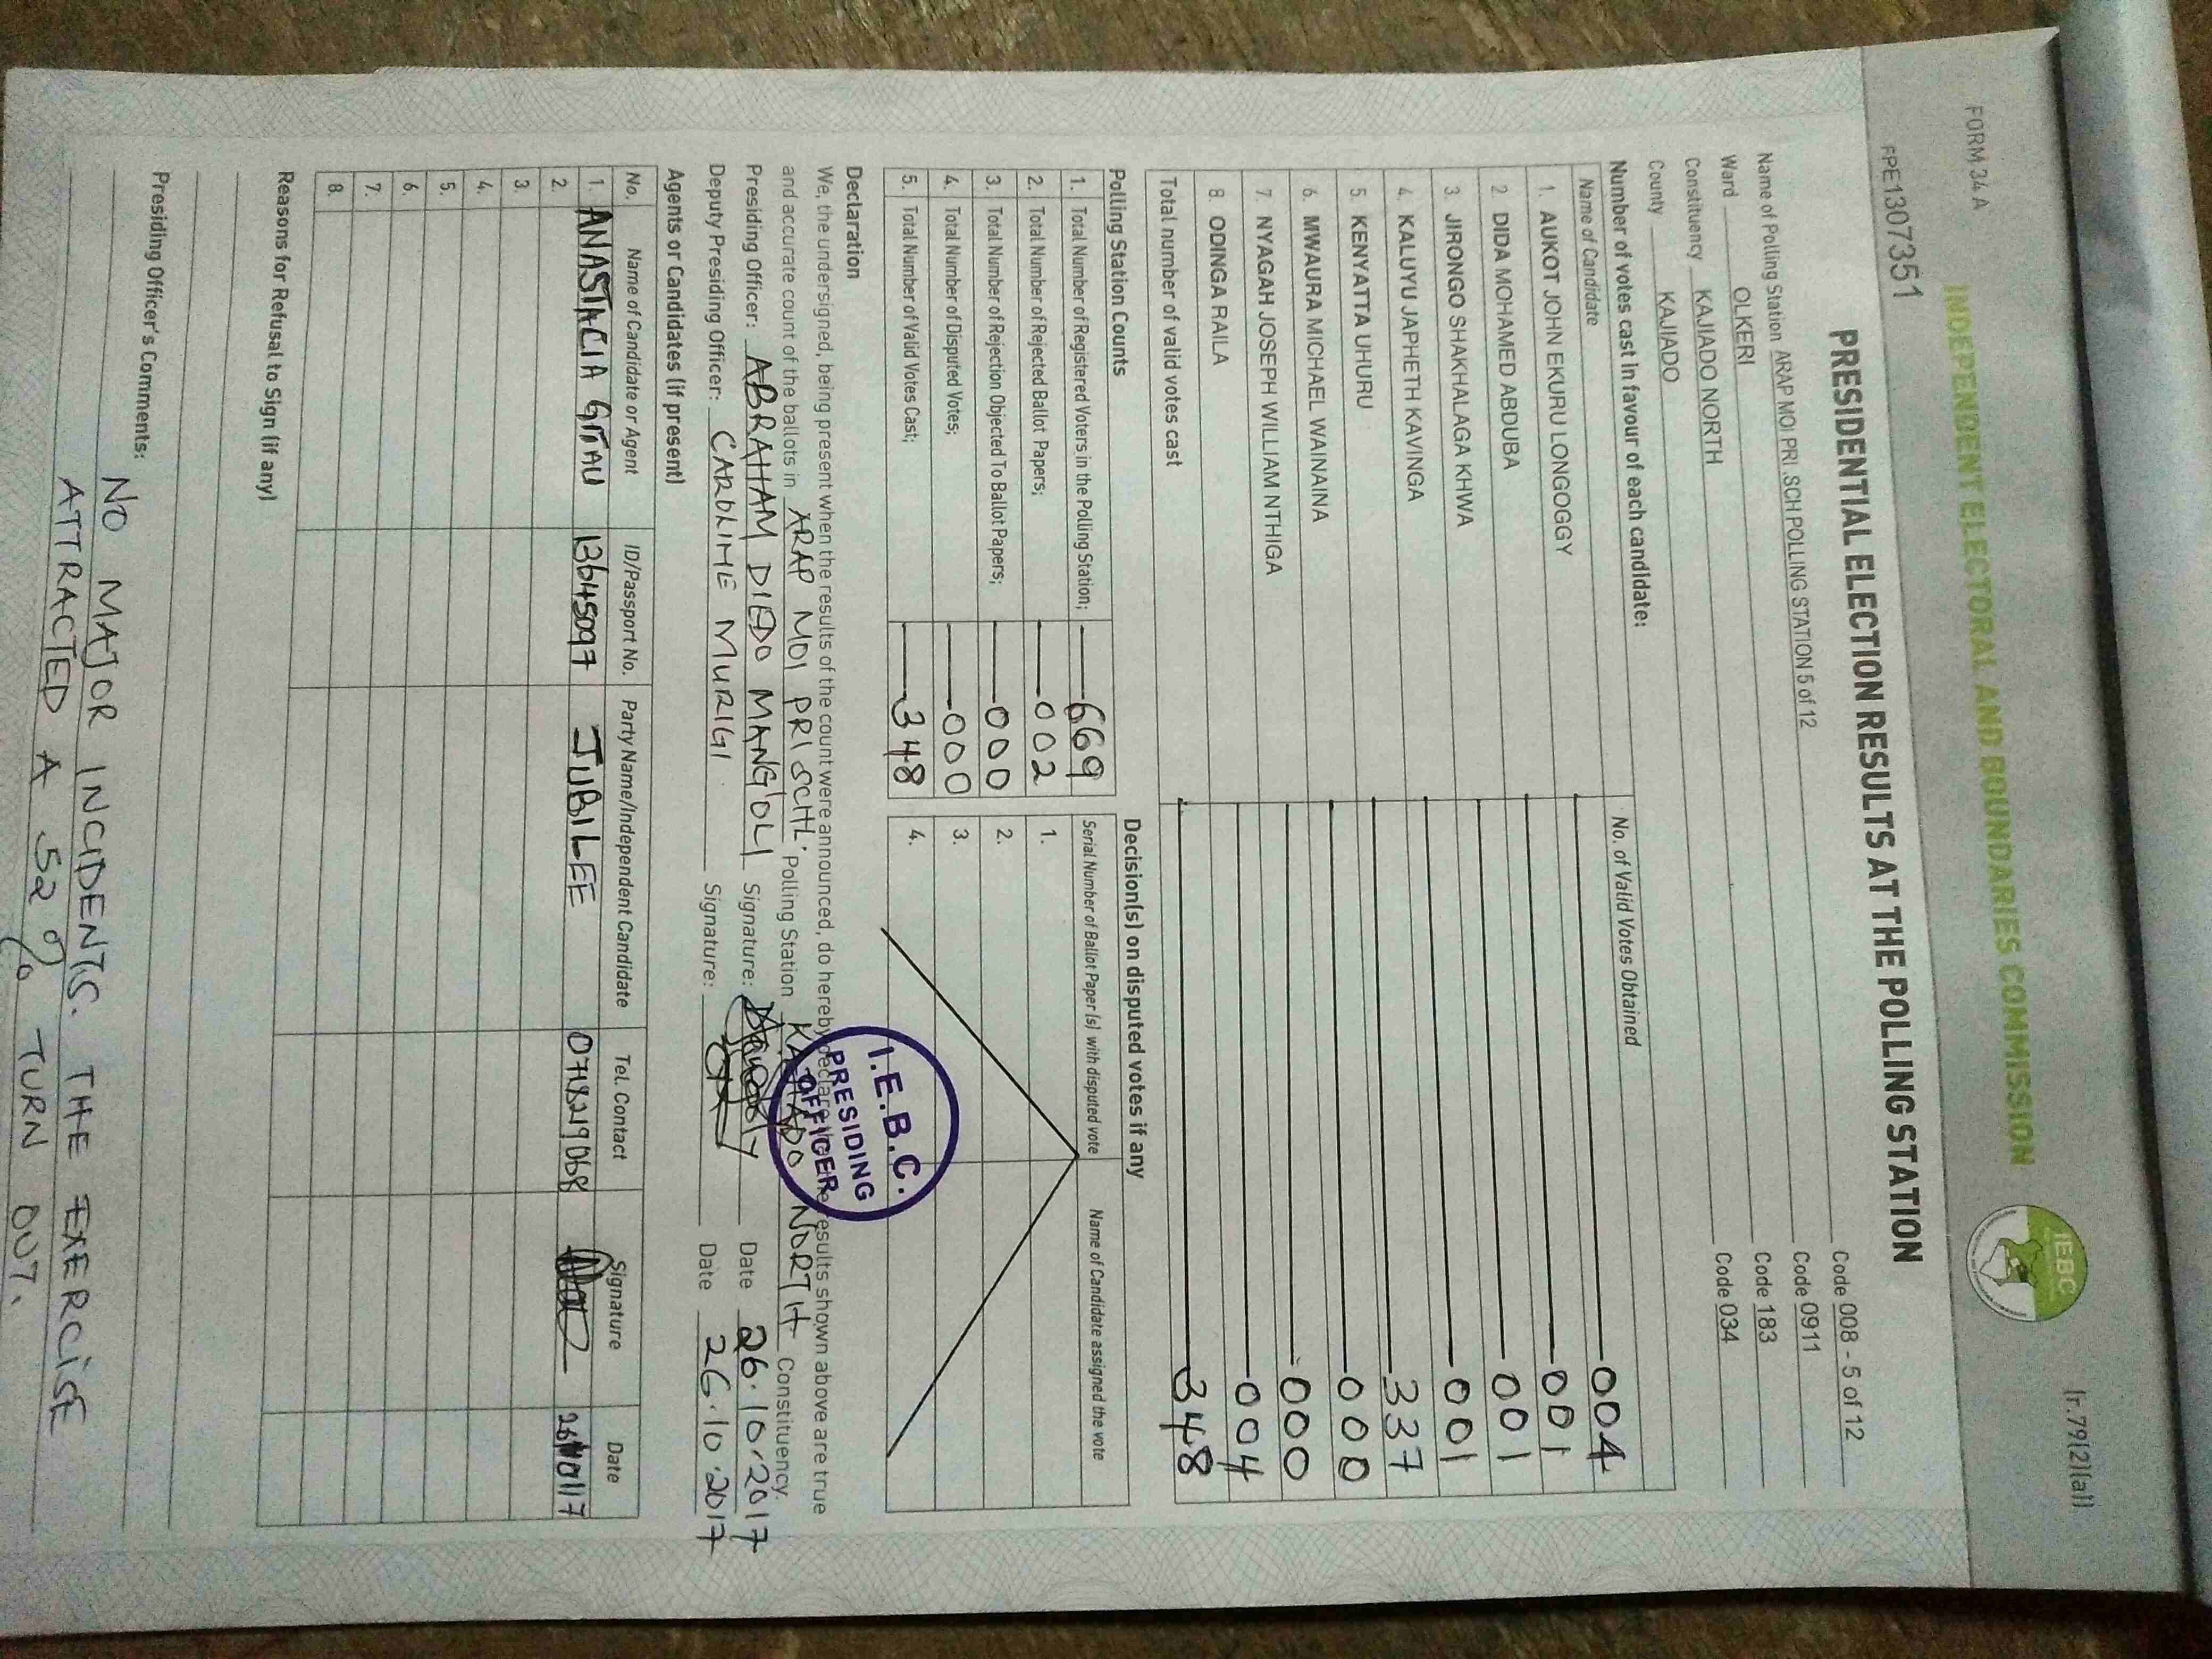 FORM 34 A
(r.79(2)(a))
INDEPENDENT ELECTORAL AND BOUNDARIES COMMISSION
IEBC
FPE1307351
PRESIDENTIAL ELECTION RESULTS AT THE POLLING STATION
Name of Polling Station ARAP MOI PRI .SCH POLLING STATION 5 of 12 Code 008 - 5 of 12
Ward OLKERI Code 0911
Constituency KAJIADO NORTH Code 183
County KAJIADO Code 034
Number of votes cast in favour of each candidate:
Name of Candidate No. of Valid Votes Obtained
1. AUKOT JOHN EKURU LONGOGGY 004
2. DIDA MOHAMED ABDUBA 001
3. JIRONGO SHAKHALAGA KHWA 001
4. KALUYU JAPHETH KAVINGA 001
5. KENYATTA UHURU 337
6. MWAURA MICHAEL WAINAINA 000
7. NYAGAH JOSEPH WILLIAM NTHIGA 000
8. ODINGA RAILA 004
Total number of valid votes cast 348
Polling Station Counts
1. Total Number of Registered Voters in the Polling Station; 669
2. Total Number of Rejected Ballot Papers; 002
3. Total Number of Rejection Objected To Ballot Papers; 000
4. Total Number of Disputed Votes; 000
5. Total Number of Valid Votes Cast; 348
Decision(s) on disputed votes if any
Serial Number of Ballot Paper (s) with disputed vote Name of Candidate assigned the vote
1.
2.
3.
4.
Declaration
We, the undersigned, being present when the results of the count were announced, do hereby declare that the results shown above are true
and accurate count of the ballots in ARAP MOI PRI SCHL. Polling Station KAJIADO NORTH Constituency.
Presiding Officer: ABRAHAM DIEDO MANG'OLI Signature: Date 26.10.2017
Deputy Presiding Officer: CAROLINE MURIGI Signature: Date 26.10.2017
I.E.B.C.
PRESIDING
OFFICER
Agents or Candidates (if present)
No. Name of Candidate or Agent ID/Passport No. Party Name/Independent Candidate Tel. Contact Signature Date
1. ANASTACIA GITAU 13645097 JUBILEE 0718219068 26/10/17
2.
3.
4.
5.
6.
7.
8.
Reasons for Refusal to Sign (if any)
Presiding Officer's Comments:
NO MAJOR INCIDENTS. THE EXERCISE
ATTRACTED A 52% TURN OUT.